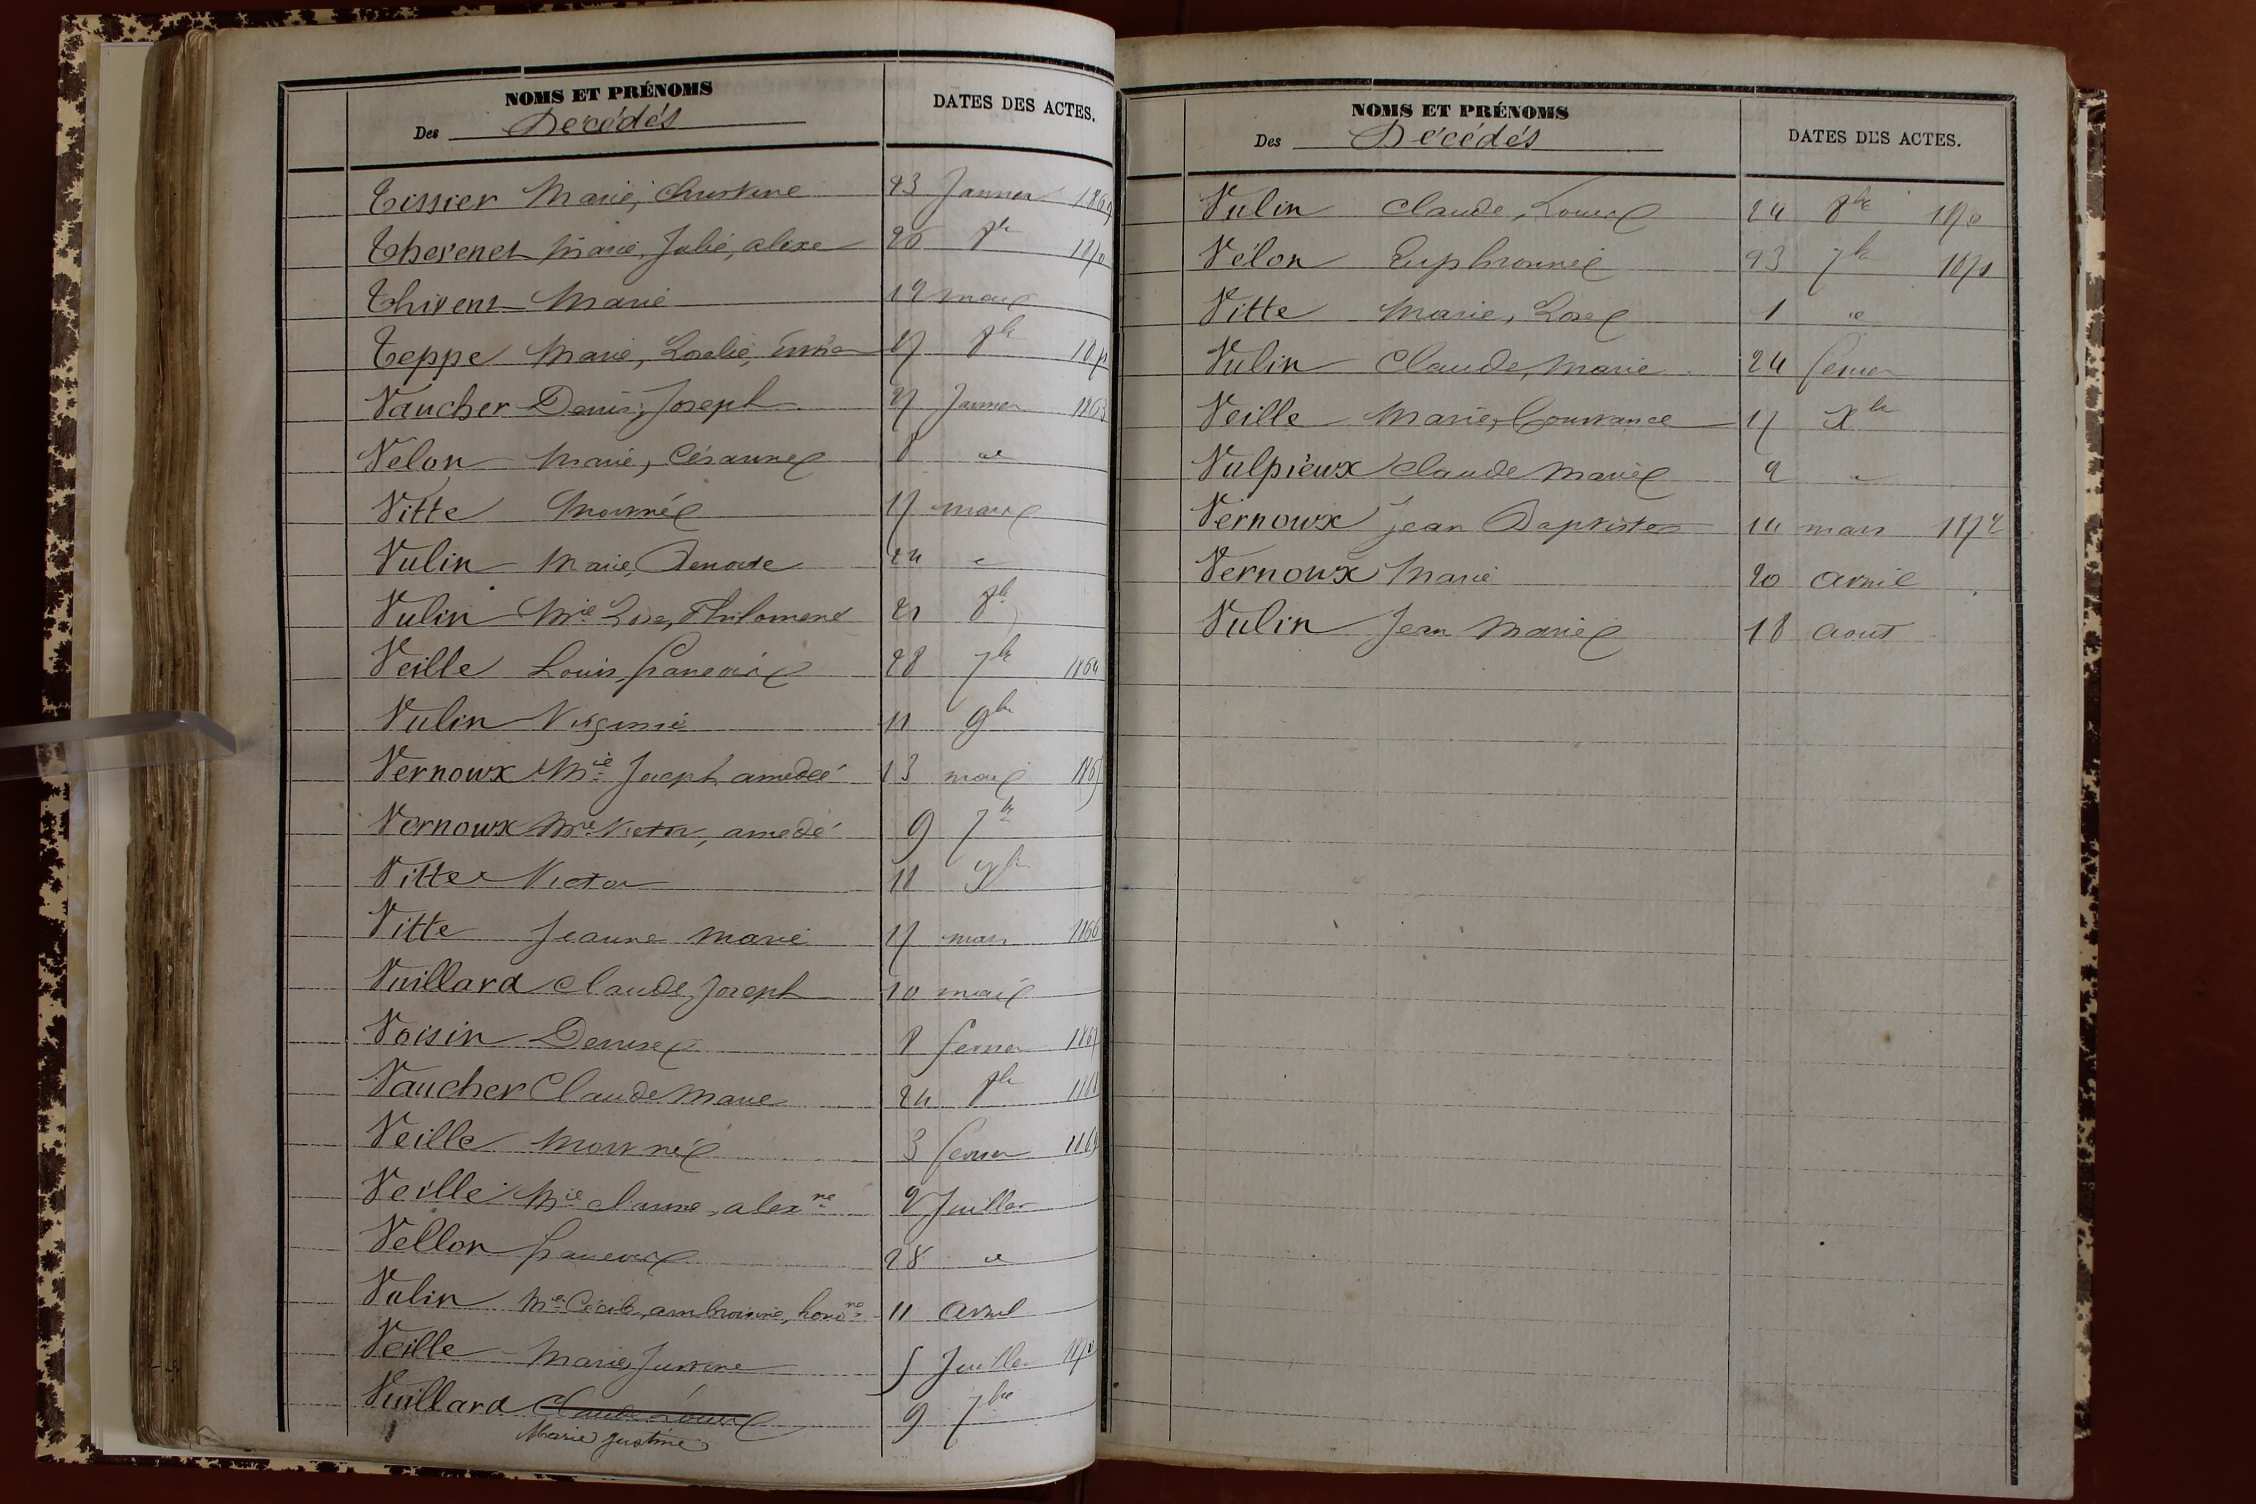 NOMS ET PRÉNOMS
Des Décédés
DATES DES ACTES.
Tissier Marie, Christine 23 Janvier 1869
Thevenet Marie, Julie, alexe 26 8bre 1870
Thivent Marie 12 mai
Teppe Marie, Rosalie 27 8bre 1871
Vaucher Denis, Joseph 27 Janvier 1863
Velon Marie, Césarine 8 "
Vitte Mornné 17 mars
Vulin Marie, Benoite 24 "
Vulin Mie Rose, Philomene 21 8bre
Veille Louis, françois 28 7bre 1864
Vulin Virginie 11 9bre
Vernoux Mie Joseph amédée 13 mai 1865
Vernoux Mie Victor, amédé 9 7bre
Vitte Victor 18 9bre
Vitte Jeanne Marie 17 mars 1866
Vuillard Claude, Joseph 10 mai
Voisin Denise 8 fevrier 1867
Vaucher Claude Marie 24 8bre 1868
Veille Mornné 3 fevrier 1869
Veille Mie Claudine, alexne 2 Juillet
Vellon françois 28 "
Vulin Mie Cécile, ambroisine, honone 11 avril
Veille Marie, Justine 5 Juillet 1870
Vuillard Claude Louis 9 7bre
Marie Justine
NOMS ET PRÉNOMS
Des Décédés
DATES DES ACTES.
Vulin Claude, Louis 24 8bre 1870
Vélon Euphrosine 23 7bre 1871
Vitte Marie, Rose 1 "
Vulin Claude, Marie 24 fevrier
Veille Marie, Constance 17 Xbre
Vulpieux Claude Marie 2 "
Vernoux Jean Baptiste 14 mars 1872
Vernoux Marie 20 avril
Vulin Jean Marie 18 aout